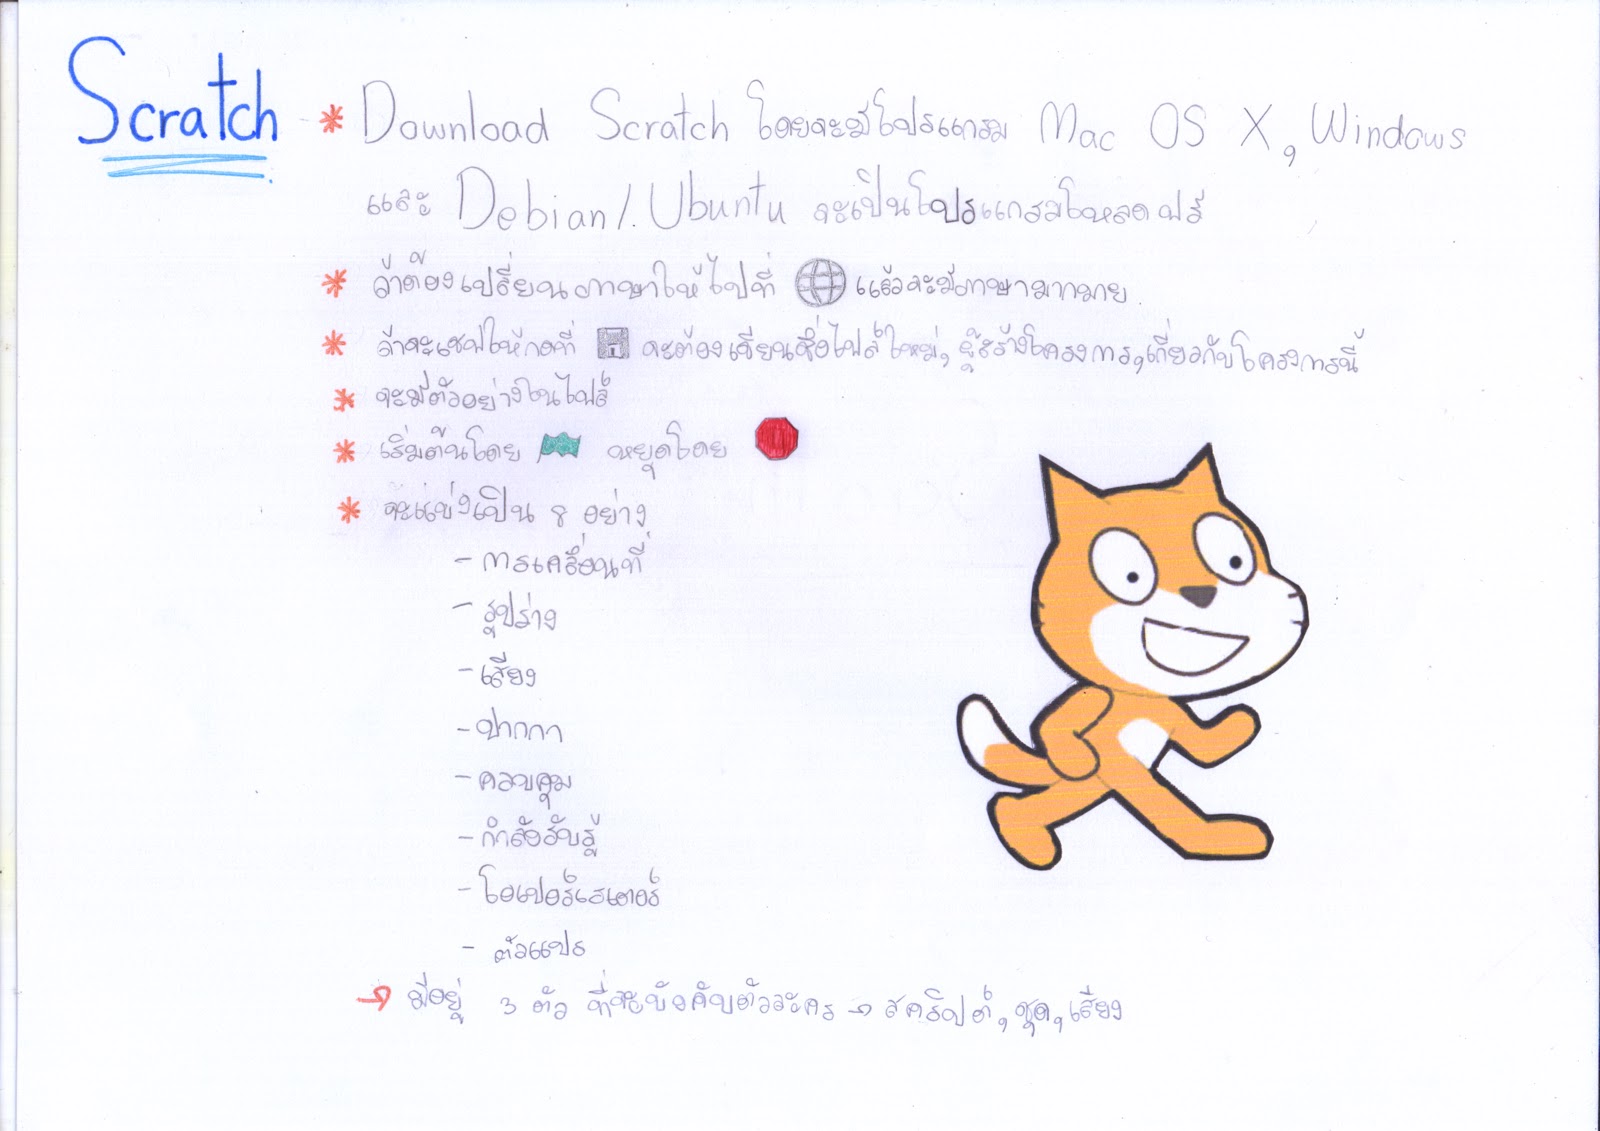 Scratch
* Download Scratch โดยจะมีโปรแกรม Mac OS X, Windows
และ Debian/Ubuntu จะเป็นโปรแกรมโหลดฟรี
* ถ้าต้องเปลี่ยนภาษาให้ไปที่ แล้วจะมีภาษามากมาย
* ถ้าจะเซฟให้กดที่ จะต้องเขียนชื่อไฟล์ใหม่, ผู้สร้างโครงการ, เกี่ยวกับโครงการนี้
* จะมีตัวอย่างในไฟล์
* เริ่มต้นโดย หยุดโดย
* จะแบ่งเป็น 8 อย่าง
- การเคลื่อนที่
- รูปร่าง
- เสียง
- ปากกา
- ควบคุม
- กำลังรับรู้
- โอเปอร์เรเตอร์
- ตัวแปร
→ มีอยู่ 3 ตัว ที่จะบังคับตัวละคร → สคริปต์, ชุด, เสียง